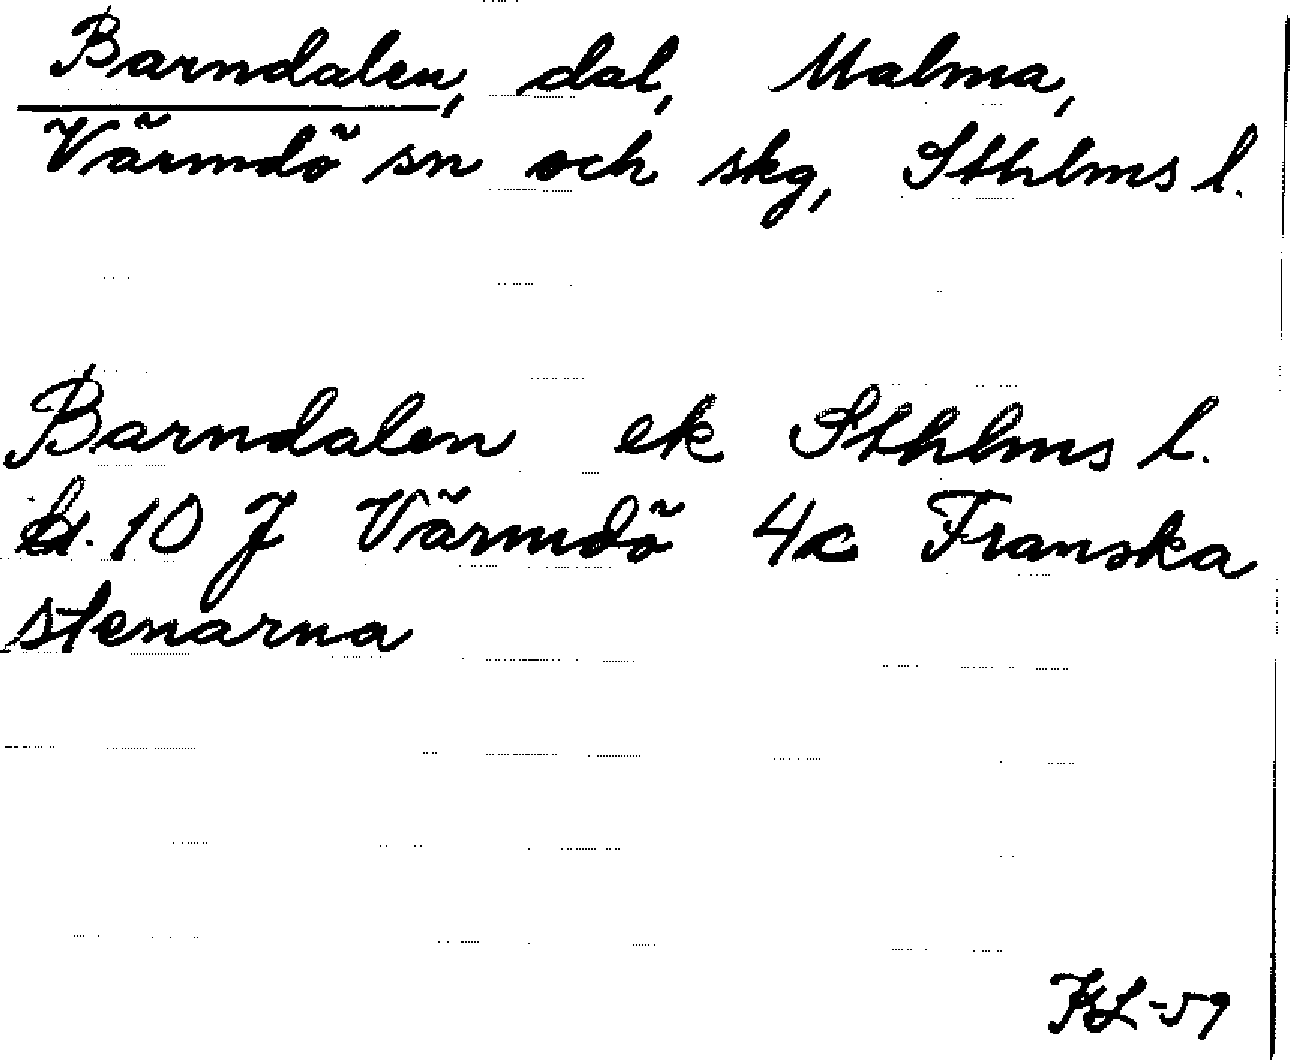 Barndalen, dal, Malma,
Värmdö sn och skg, Sthlms l.
Barndalen ek Sthlms l.
bl. 10 J Värmdö 4c Franska
stenarna
KL-59